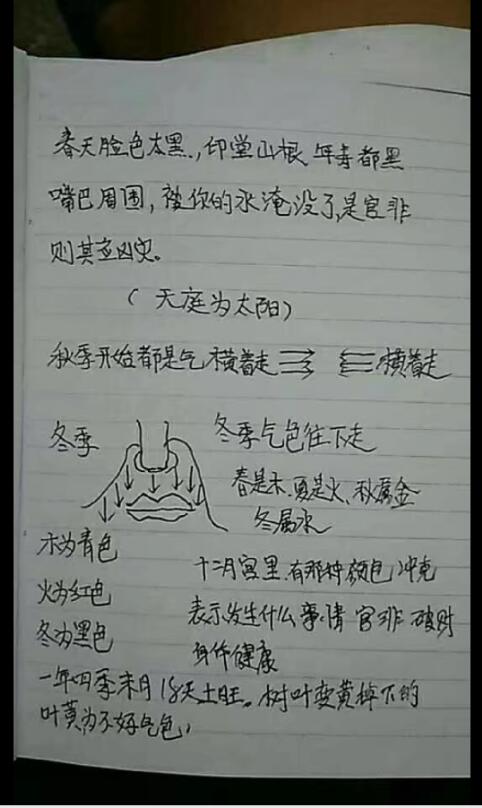 春天脸色太黑，印堂山根 年寿都黑
嘴巴周围，被你的水淹没了，是官非
则其它凶灾。
（天庭为太阳）
秋季开始都是气横着走 横着走
冬季
冬季气色往下走
春是木.夏是火、秋属金
冬属水
木为青色
火为红色
冬为黑色
十二月宫里.有那种颜色冲克
表示发生什么事情 官非 破财
身体健康
一年四季末月18天土旺。树叶变黄掉下的
叶黄为不好气色，